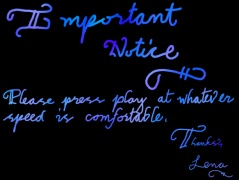 Important
Notice
!!
Please press play at whatever
speed is comfortable.
Thanks,
Lena